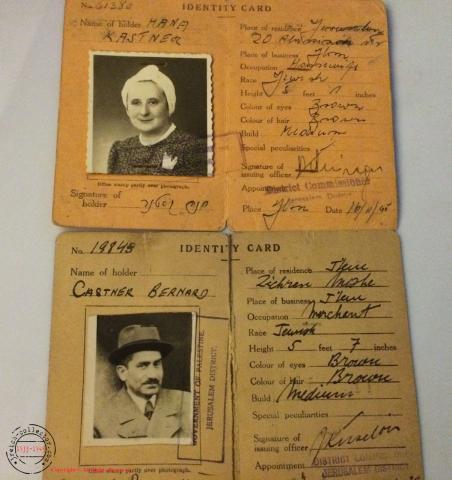 No. 61380
IDENTITY CARD
Name of holder HANA
KASTNER
Place of residence Jerusalem
20
Place of business Jlem
Occupation Housewife
Race Jewish
Height 5 feet 1 inches
Colour of eyes Brown
Colour of hair Brown
Build Medium
Special peculiarities
Signature of
issuing officer
Appointment
District Commissioner
Jerusalem District
Place Jlem Date
Office stamp partly over photograph.
Signature of
holder חנה קסטנר
No. 19848 IDENTITY CARD
Name of holder
CASTNER BERNARD
Place of residence Jlem
Zichron Moshe
Place of business Jlem
Occupation Merchant
Race Jewish
Height 5 feet 7 inches
Colour of eyes Brown
Colour of hair Brown
Build Medium
Special peculiarities
Signature of
issuing officer
Appointment
DISTRICT
JERUSALEM DISTRICT
GOVERNMENT OF PALESTINE.
JERUSALEM DISTRICT.
Office stamp partly over photograph.